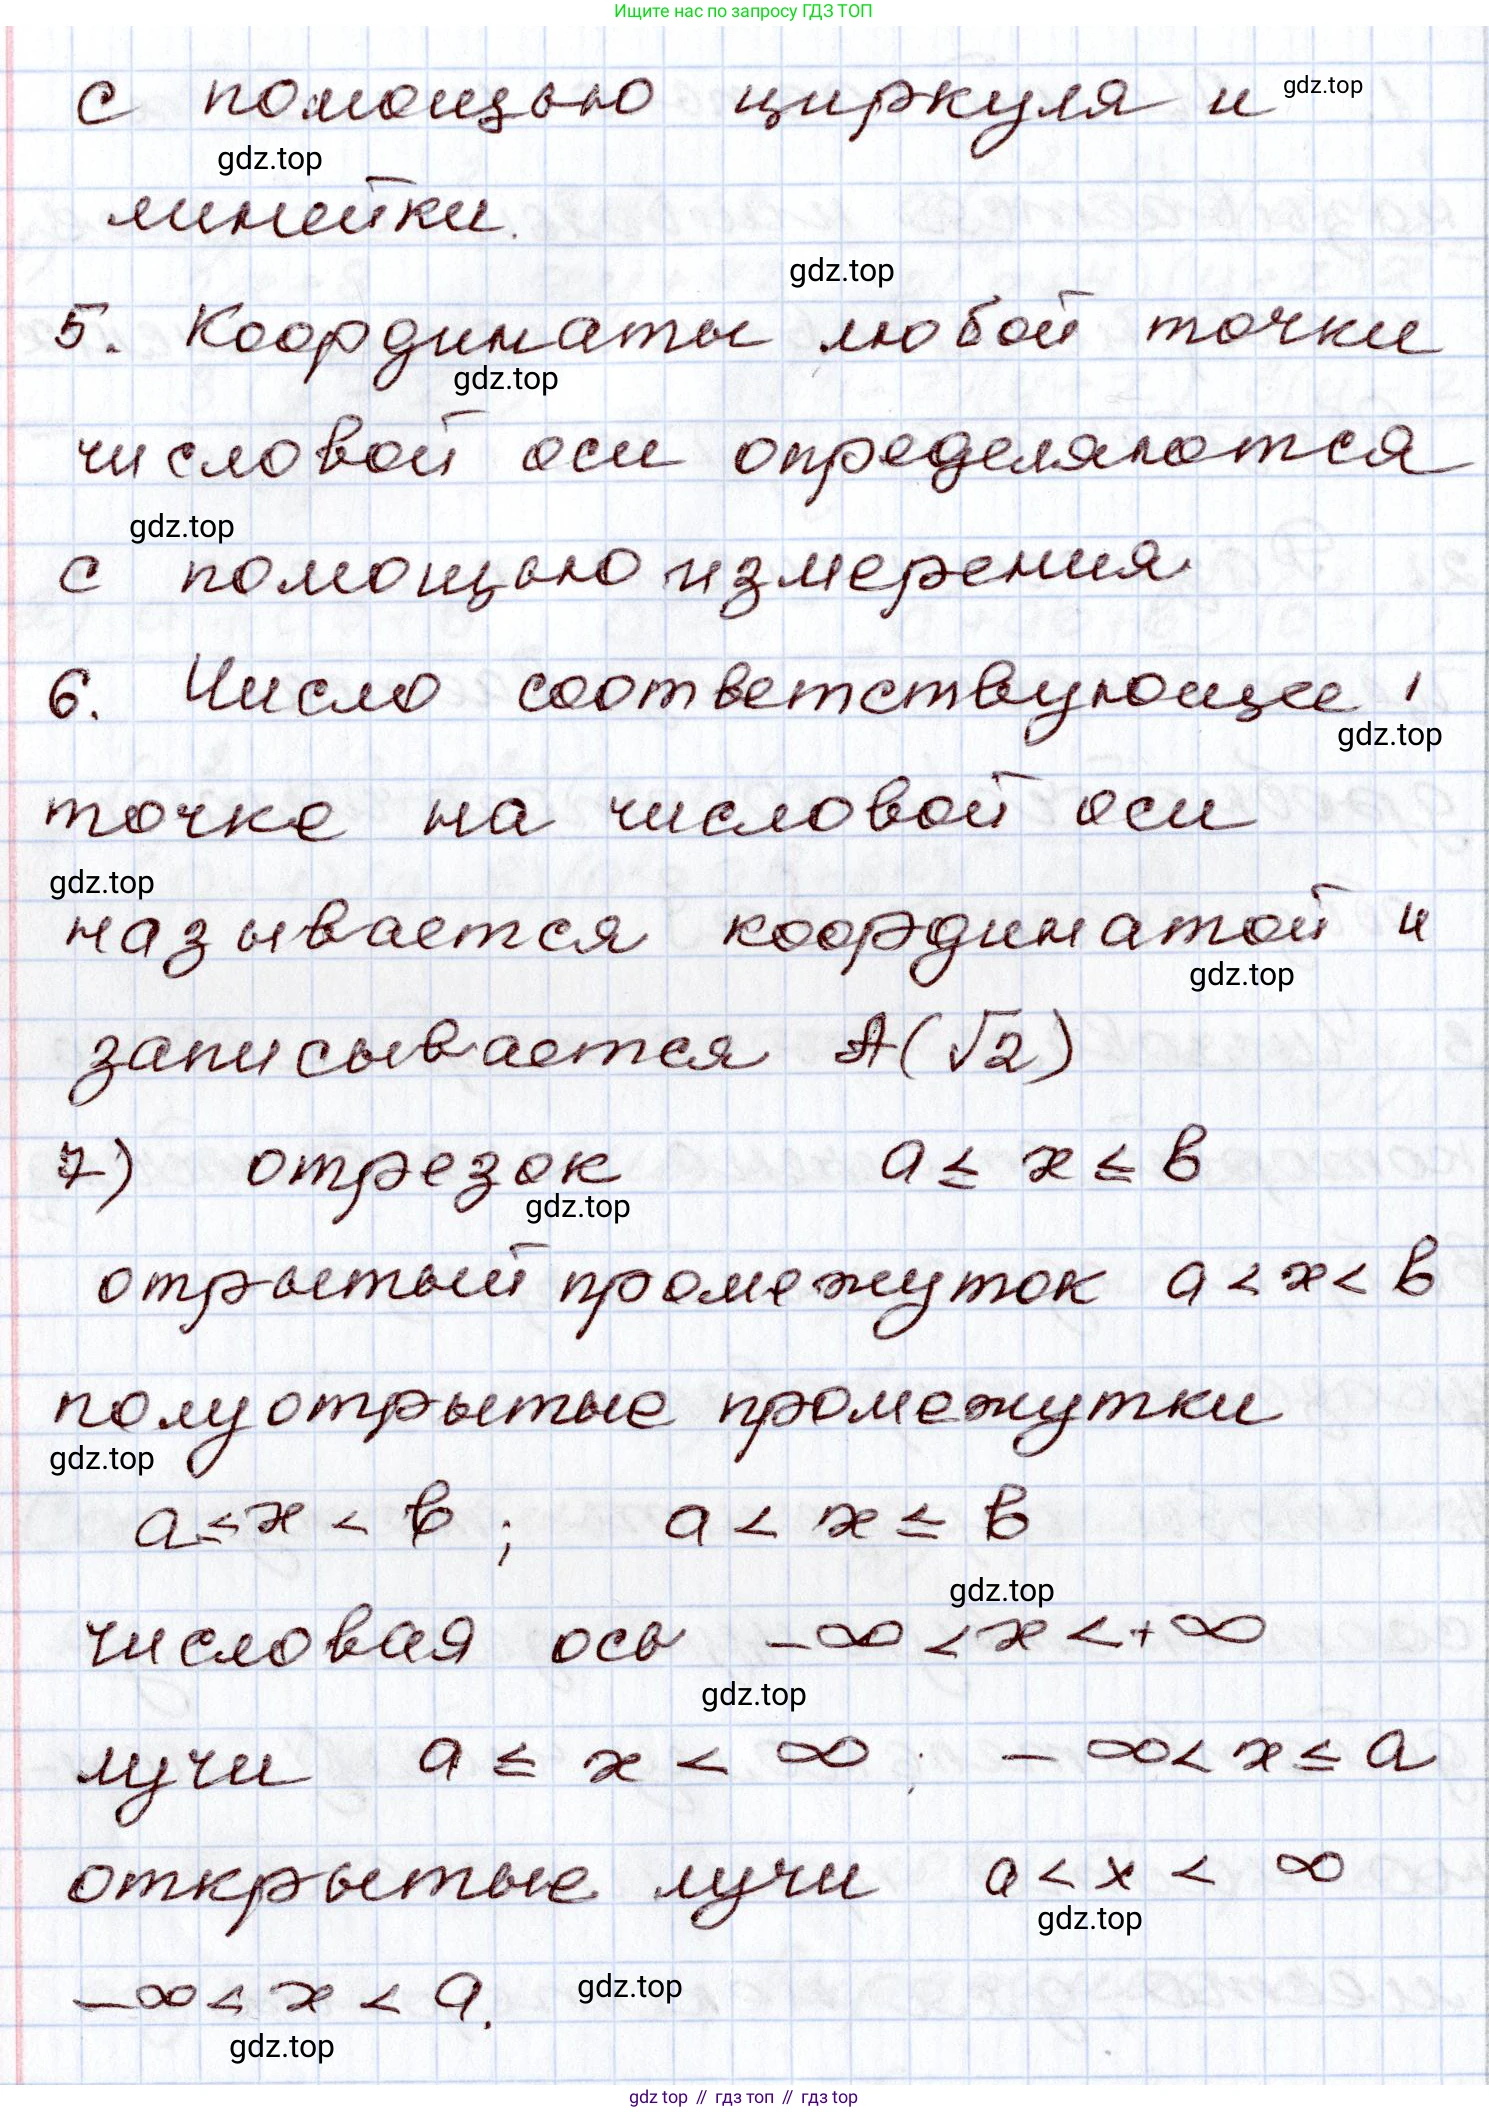 Ищите нас по запросу ГДЗ ТОП
с помощью циркуля и gdz.top
gdz.top
линейки.
gdz.top
5. Координаты любой точки
gdz.top
числовой оси определяются
gdz.top
с помощью измерения
6. Число соответствующее
gdz.top
точке на числовой оси
gdz.top
называется координатой и
gdz.top
записывается A(√2)
7) отрезок a ≤ x ≤ в
gdz.top
отрытый промежуток a < x < в
полуотрытые промежутки
gdz.top
a ≤ x < в ; a < x ≤ в
gdz.top
числовая ось -∞ < x < +∞
gdz.top
лучи a ≤ x < ∞ ; -∞ < x ≤ a
открытые лучи a < x < ∞
gdz.top
-∞ < x < a.
gdz.top
gdz.top
gdz top // гдз топ // гдз top